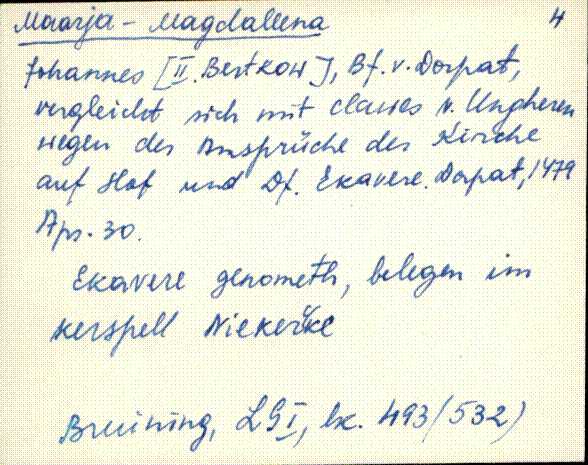 Maarja-Magdaleena 4
Johannes [II. Bertkow], Bf. v. Dorpat,
vergleicht sich mit Clawes v. Ungheren
wegen der Ansprüche der Kirche
auf Hof und Df. Ekavere. Dorpat, 1479
Apr. 30.
Ekavere genometh, belegen im
kerspell Niekerke
Bruining, LG I, lk. 493 (532)